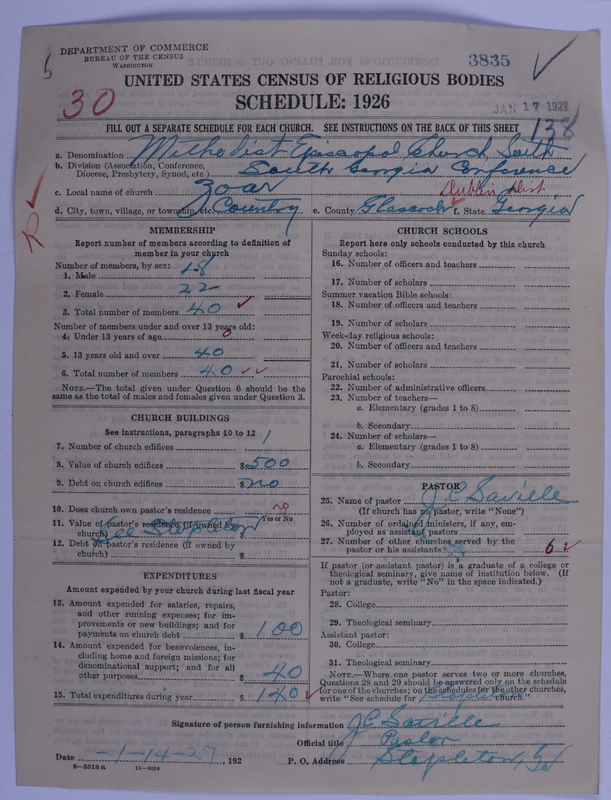 DEPARTMENT OF COMMERCE
BUREAU OF THE CENSUS
WASHINGTON
3835
UNITED STATES CENSUS OF RELIGIOUS BODIES
30
SCHEDULE: 1926
JAN 17 1927
FILL OUT A SEPARATE SCHEDULE FOR EACH CHURCH. SEE INSTRUCTIONS ON THE BACK OF THIS SHEET
138
a. Denomination Methodist Episcopal Church, South
b. Division (Association, Conference, Diocese, Presbytery, Synod, etc.) South Georgia Conference
c. Local name of church Zoar
Dublin Dist
d. City, town, village, or township, etc. Country e. County Glascock f. State Georgia
R
MEMBERSHIP
Report number of members according to definition of
member in your church
Number of members, by sex:
1. Male 18
2. Female 22
3. Total number of members 40
Number of members under and over 13 years old:
4. Under 13 years of age 0
5. 13 years old and over 40
6. Total number of members 40
NOTE.—The total given under Question 6 should be
same as the total of males and females given under Question 3.
CHURCH BUILDINGS
See instructions, paragraphs 10 to 12
7. Number of church edifices 1
8. Value of church edifices $500
9. Debt on church edifices $no
10. Does church own pastor's residence no
Yes or No
11. Value of pastor's residence (If owned by
church) $
See Stapleton
12. Debt on pastor's residence (If owned by
church) $
EXPENDITURES
Amount expended by your church during last fiscal year
13. Amount expended for salaries, repairs,
and other running expenses; for im-
provements or new buildings; and for
payments on church debt $100
14. Amount expended for benevolences, in-
cluding home and foreign missions; for
denominational support; and for all
other purposes $40
15. Total expenditures during year $140
CHURCH SCHOOLS
Report here only schools conducted by this church
Sunday schools:
16. Number of officers and teachers
17. Number of scholars
Summer vacation Bible schools:
18. Number of officers and teachers
19. Number of scholars
Week-day religious schools:
20. Number of officers and teachers
21. Number of scholars
Parochial schools:
22. Number of administrative officers
23. Number of teachers—
a. Elementary (grades 1 to 8)
b. Secondary
24. Number of scholars—
a. Elementary (grades 1 to 8)
b. Secondary
PASTOR
25. Name of pastor J. C. Saville
(If church has no pastor, write "None")
26. Number of ordained ministers, if any, em-
ployed as assistant pastors
27. Number of other churches served by the
pastor or his assistants 6
If pastor (or assistant pastor) is a graduate of a college or
theological seminary, give name of institution below. (If
not a graduate, write "No" in the space indicated.)
Pastor:
28. College
29. Theological seminary
Assistant pastor:
30. College
31. Theological seminary
NOTE.—Where one pastor serves two or more churches,
Questions 28 and 29 should be answered only on the schedule
for one of the churches; on the schedules for the other churches,
write "See schedule for Stapleton church."
Signature of person furnishing information J C Saville
Official title Pastor
Date -1-14-27, 192
P. O. Address Stapleton, Ga
8—5518 a 11—9054